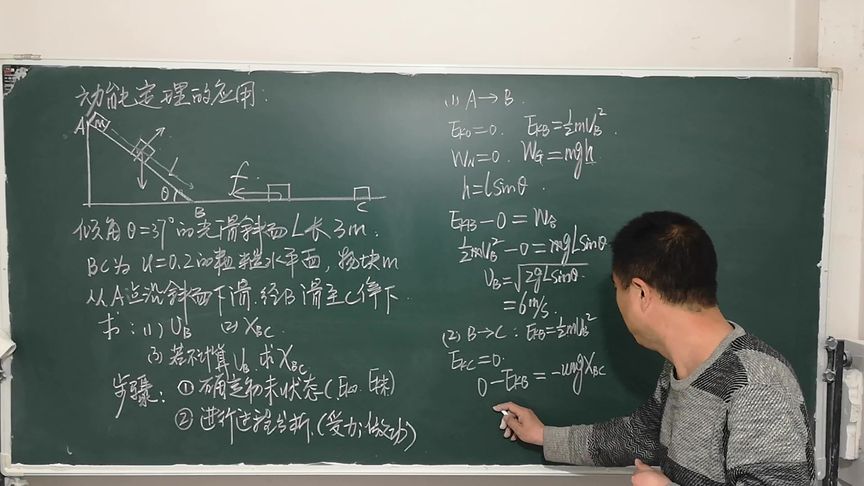 动能定理的应用.
A m
L
θ
f
B
C
倾角θ=37°的光滑斜面L长3m.
BC为u=0.2的粗糙水平面,物块m
从A点沿斜面下滑.经B滑至C停下.
求:(1) UB (2) XBC.
(3) 若不计算UB.求XBC
步骤: ①确定物末状态(Eko. Ek末)
②进行过程分析.(受力;做功)
(1) A→B.
Eko=0. EKB=½mUB².
WN=0. WG=mgh
h=lsinθ.
EKB-0=WG
½mUB²-0=mgLsinθ
UB=√2gLsinθ.
=6m/s.
(2) B→C: EKB=½mUB²
EKC=0.
0-EKB=-umgXBC